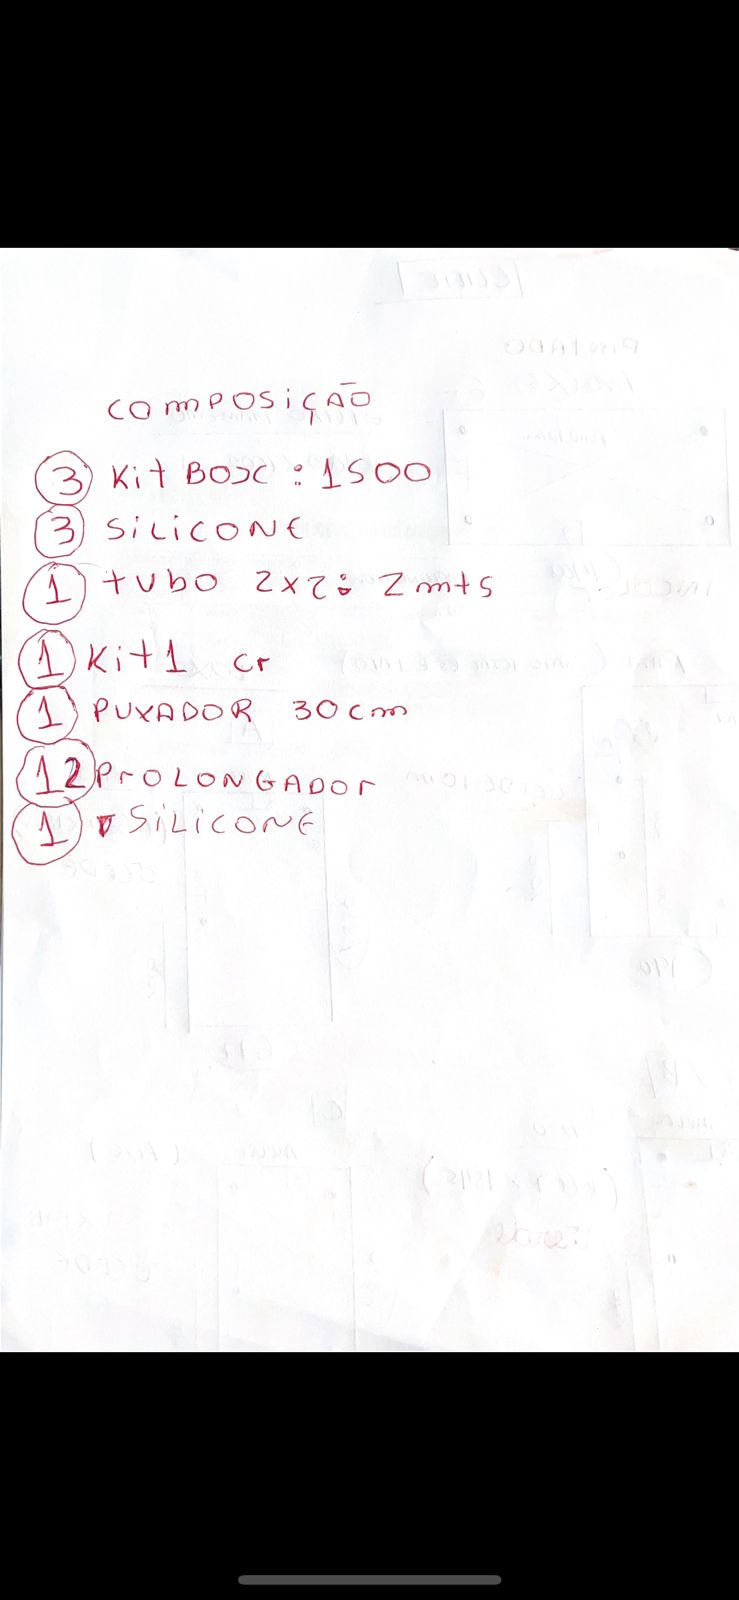 COMPOSIÇÃO
3 Kit BOX : 1500
3 SILICONE
1 tubo 2x2: 2mts
1 Kit1 cr
1 PUXADOR 30cm
12 PrOLONGADOr
1 SILICONE